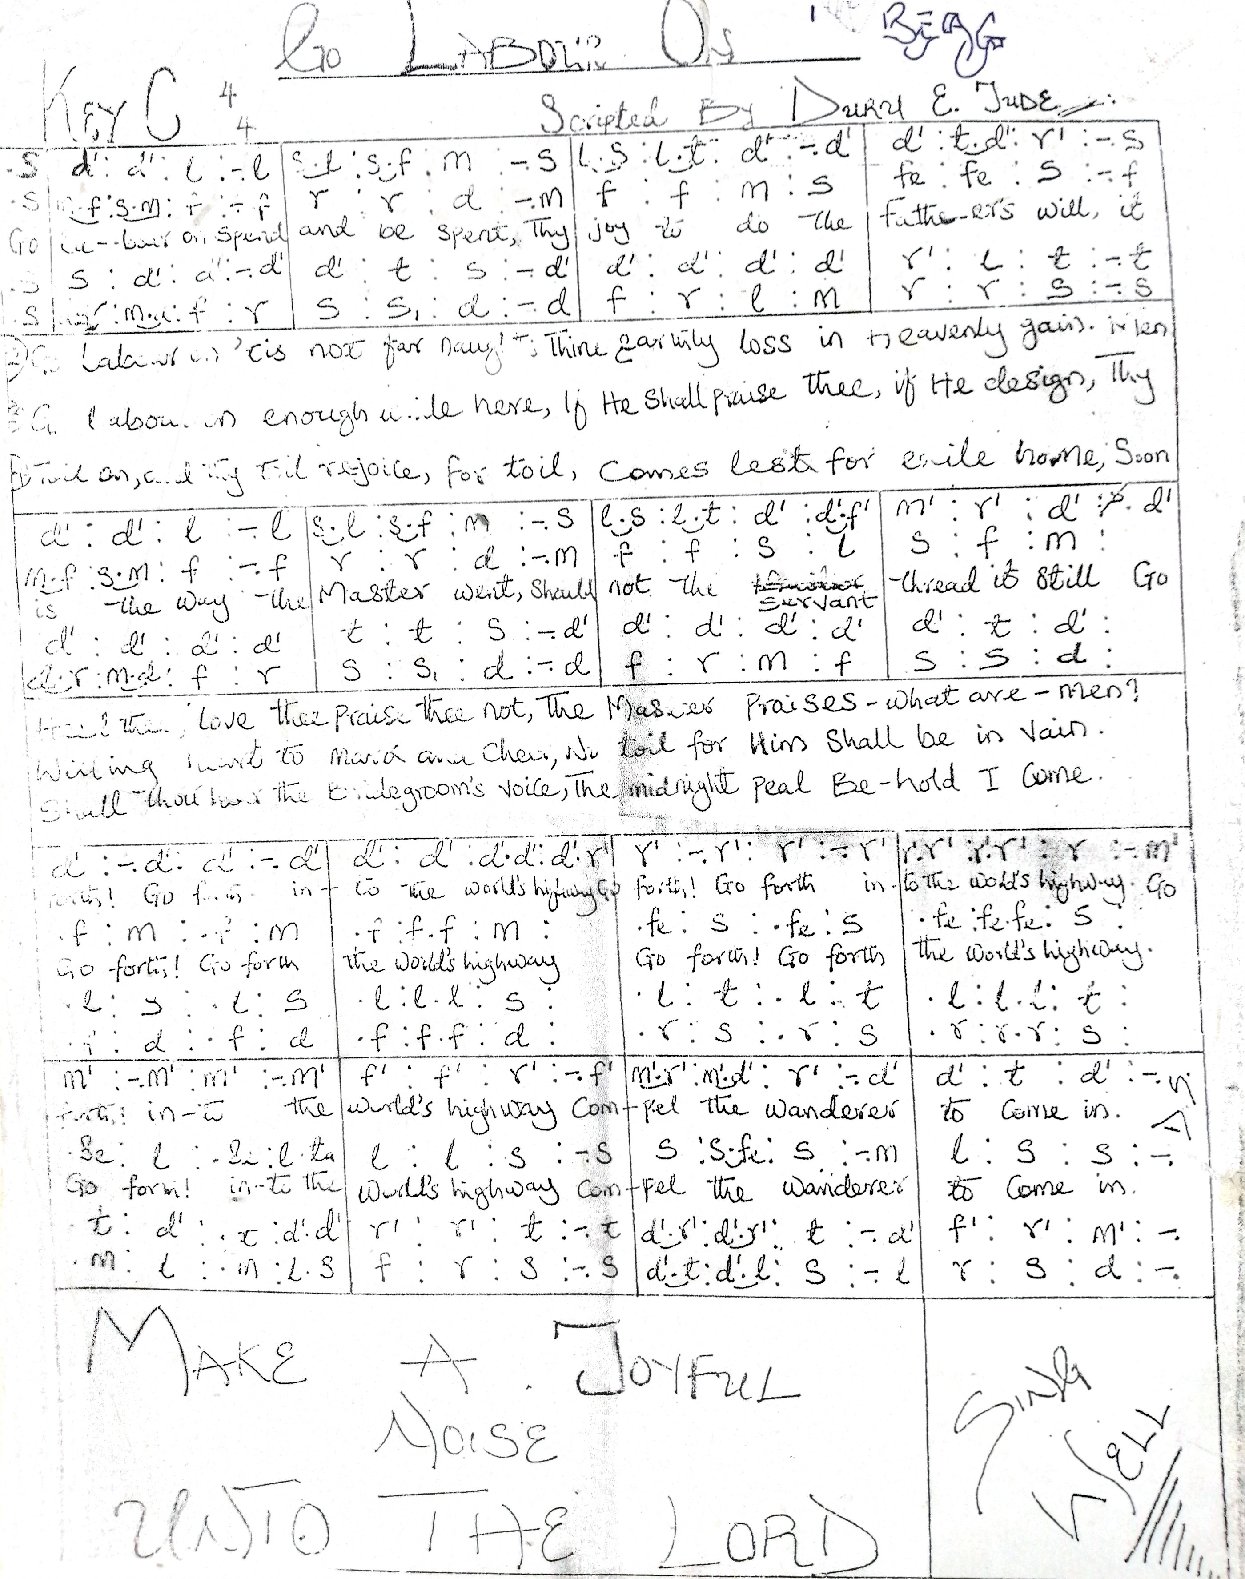 Go LABOUR ON BEAG
KEY C 4/4
Scripted By DURU E. JUDE
.S d' : d' : l :-.l | s.l : s.f . m :-.S | l.S : l.t : d' :-.d' | d' : t.d' : r' :-.s
.S m.f : s.m : f :-.f | r : r : d :-.m | f : f : m : s | fe : fe : s :-.f
Go la--bour on, spend and be spent, Thy joy to do the Fath-er's will, it
.S s : d' : d' :-.d' | d' : t : s :-.d' | d' : d' : d' : d' | r' : l : t :-.t
.S : m.d : f : r | s : s, : d :-.d | f : r : l : m | r : r : s :-.s
labour on 'tis not for naught Thine earthly loss in Heavenly gain. Men
Go labour on enough while here, If He shall praise thee, if He design, Thy
Toil on, and thy toil rejoice, for toil, Comes lest for exile home, Soon
d' : d' : l :-.l | s.l : s.f : m :-.s | l.s : l.t : d' : d'.f' | m' : r' : d' : . d'
m.f : s.m : f :-.f | r : r : d :-.m | f : f : s : l | s : f : m :
is the way the Master went, Should not the servant thread it still Go
d' : d' : d' : d' | t : t : s :-.d' | d' : d' : d' : d' | d' : t : d' :
d.r : m.d : f : r | s : s, : d :-.d | f : r : m : f | s : s : d :
love thee praise thee not, The Master Praises - what are - men?
Willing heart to mark and Cheer, No toil for Him Shall be in Vain.
Shall thou hear the Bridegroom's voice, The midnight peal Be-hold I Come.
d' :-.d' : d' :-.d' | d' : d' : d'.d' : d'.r' | r' :-.r' : r' :-.r' | r'.r' : r'.r' : r :-.m'
forth! Go forth in - to the world's highway Go forth! Go forth in - to the world's highway. Go
.f : m : .f : m | .f : f.f : m : | .fe : s : .fe : s | .fe : fe.fe : s :
Go forth! Go forth the world's highway Go forth! Go forth the world's highway.
.l : s : .l : s | .l : l.l : s : | .l : t : .l : t | .l : l.l : t :
.f : d : .f : d | .f : f.f : d : | .r : s : .r : s | .r : r.r : s :
m' :-.m' : m' :-.m' | f' : f' : r' :-.f' | m'.r' : m'.d' : r' :-.d' | d' : t : d' :-.
forth! in-to the world's highway Com-pel the wanderer to Come in.
.se : l : .se : l.ta | l : l : s :-.s | s : s.fe : s :-.m | l : s : s :-.
Go forth! in-to the world's highway Com-pel the wanderer to Come in.
.t : d' : .t : d'.d' | r' : r' : t :-.t | d'.r' : d'.r' : t :-.d' | f' : r' : m' :-.
.m : l : .m : l.s | f : r : s :-.s | d'.t : d'.l : s :-.l | r : s : d :-.
MAKE A JOYFUL
NOISE
UNTO THE LORD
SING
WELL